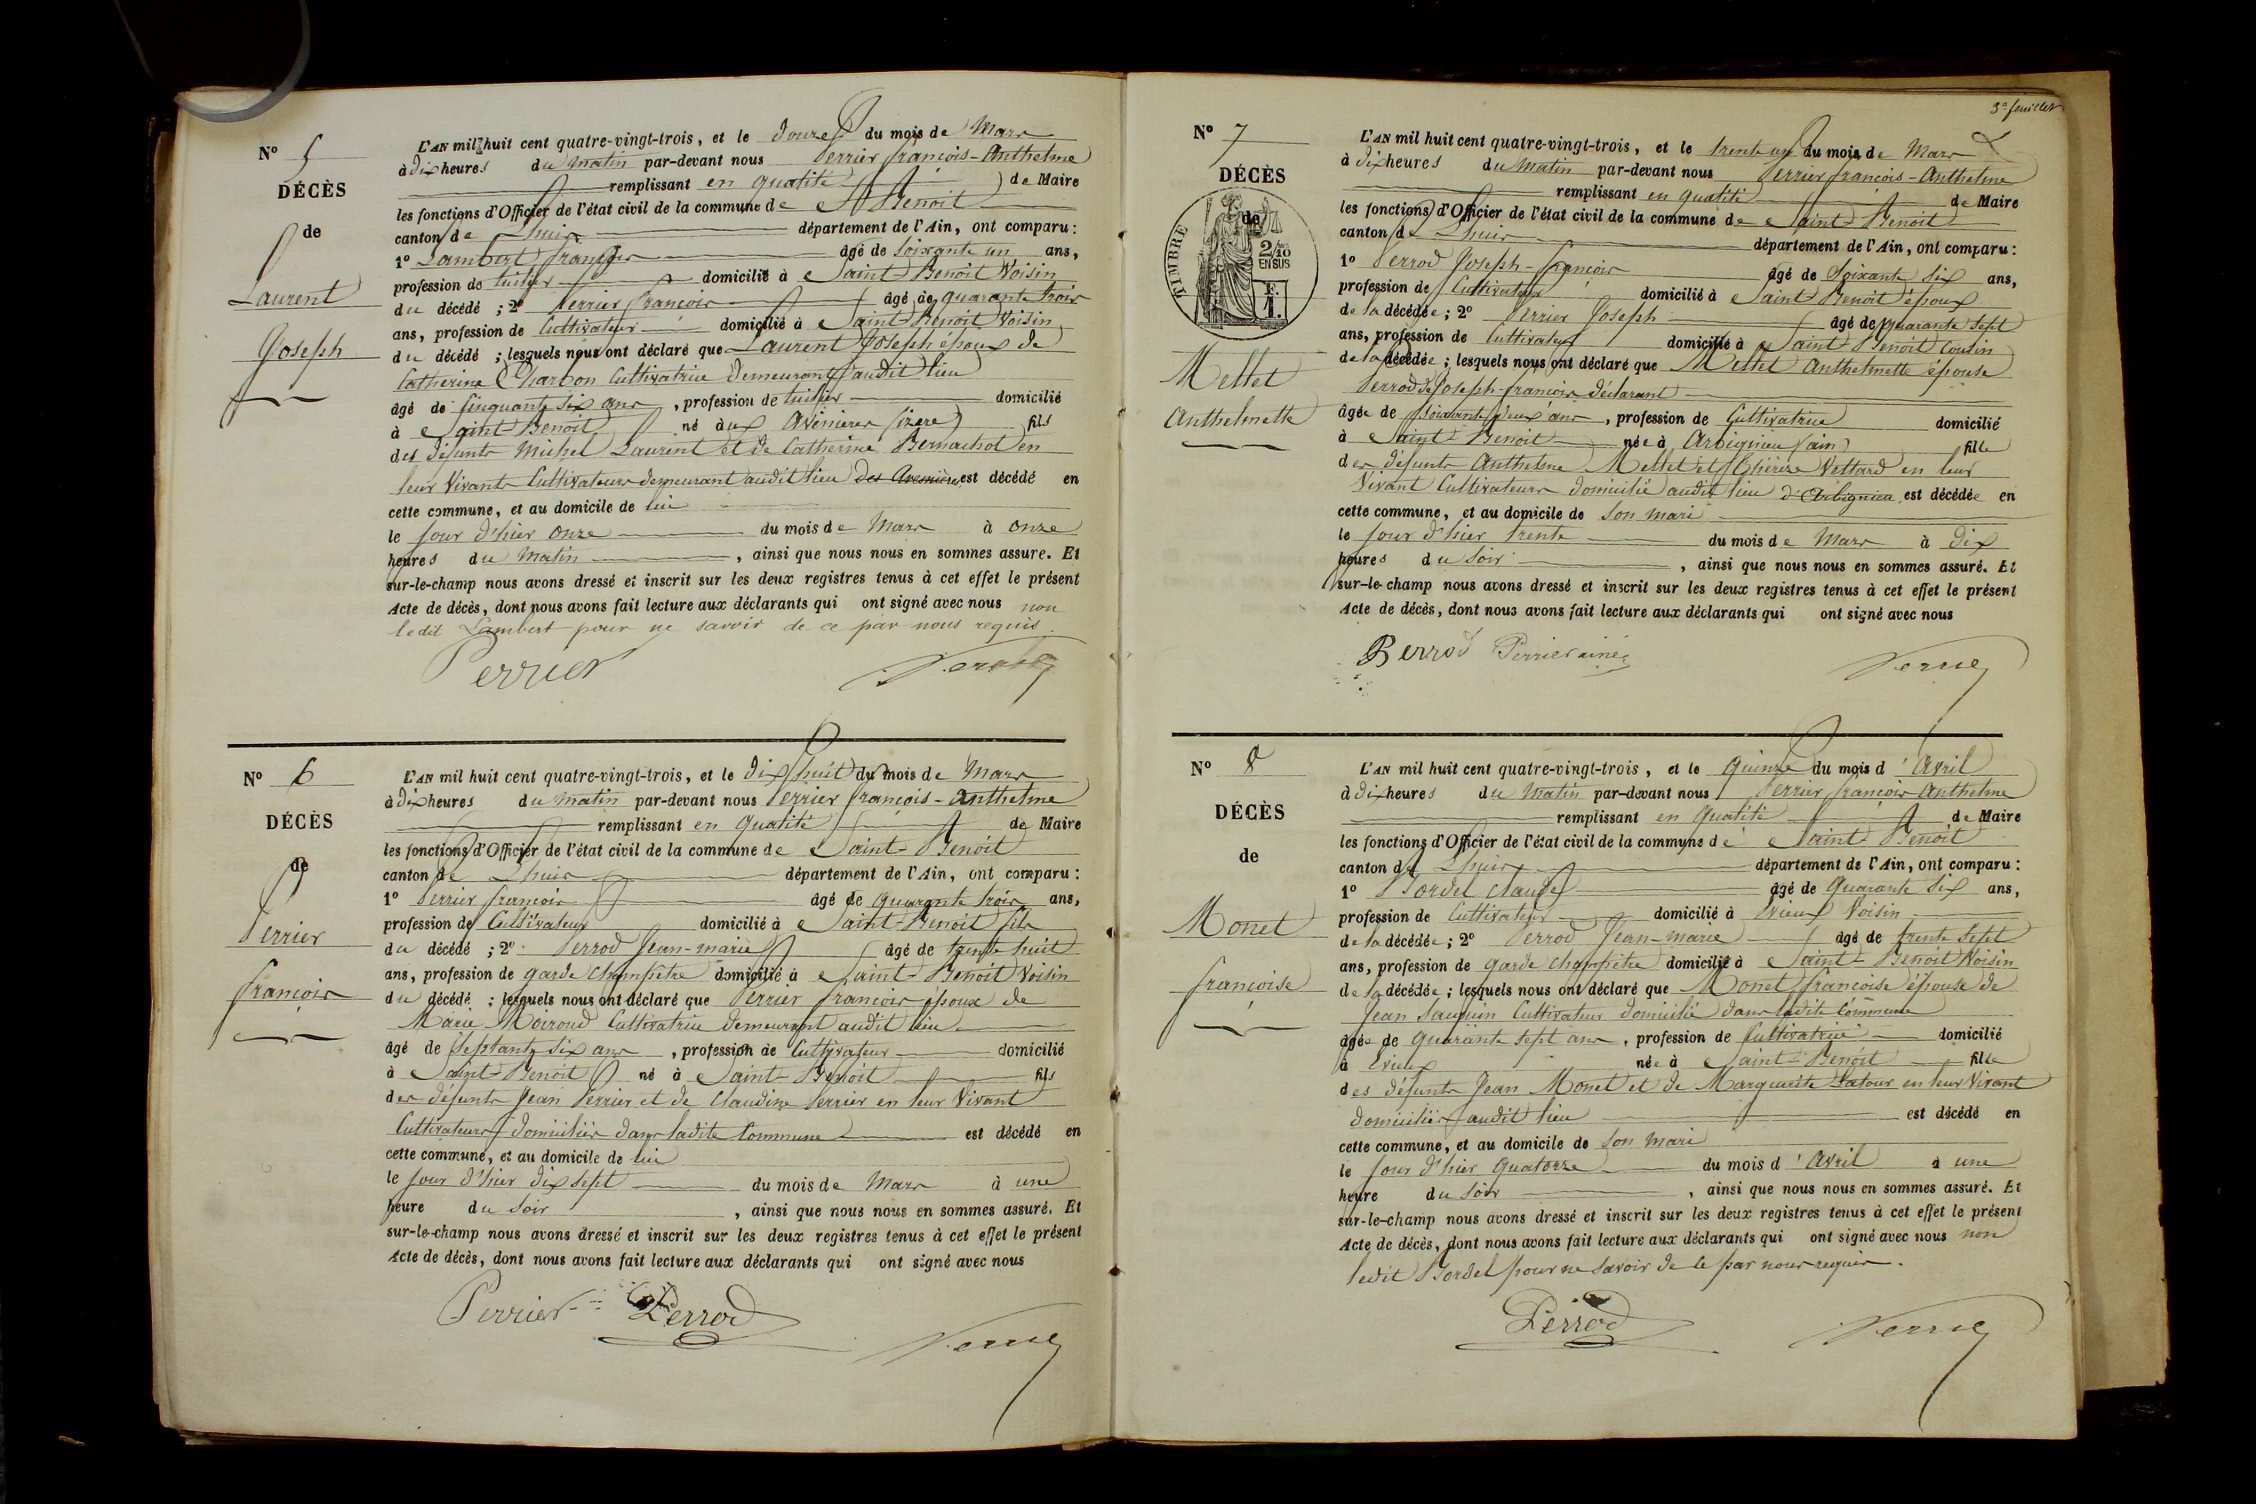 N° 5
DÉCÈS
de
Laurent
Joseph
L'AN mil huit cent quatre-vingt-trois, et le douze du mois de Mars
à dix heures du matin par-devant nous Perrier françois-Anthelme
remplissant en qualité de Maire
les fonctions d'Officier de l'état civil de la commune de St Benoit
canton de Lhuis département de l'Ain, ont comparu :
1° Lambert françois âgé de soixante un ans,
profession de tuilier domicilié à Saint-Benoit Voisin
du décédé ; 2° Perrier françois âgé de quarante trois
ans, profession de Cultivateur domicilié à Saint-Benoit Voisin
du décédé ; lesquels nous ont déclaré que Laurent Joseph époux de
Catherine Charbon Cultivatrice demeurant audit lieu
âgé de Cinquante six ans, profession de tuilier domicilié
à Saint Benoit né aux Avenières (izère) fils
des défunts Michel Laurent et de Catherine Bernachot en
leur Vivants Cultivateurs demeurant audit lieu des Avenières est décédé en
cette commune, et au domicile de lui
le jour d'hier onze du mois de Mars à onze
heures du Matin, ainsi que nous nous en sommes assure. Et
sur-le-champ nous avons dressé et inscrit sur les deux registres tenus à cet effet le présent
Acte de décès, dont nous avons fait lecture aux déclarants qui ont signé avec nous non
ledit Lambert pour ne savoir de ce par nous requis.
Perrier
N° 6
DÉCÈS
de
Perrier
françois
L'AN mil huit cent quatre-vingt-trois, et le dix huit du mois de Mars
à dix heures du matin par-devant nous Perrier françois-Anthelme
remplissant en qualité de Maire
les fonctions d'Officier de l'état civil de la commune de Saint-Benoit
canton de Lhuis département de l'Ain, ont comparu :
1° Perrier françois âgé de quarante trois ans,
profession de Cultivateur domicilié à Saint-Benoit fils
du décédé ; 2° Perrod Jean-marie âgé de trente huit
ans, profession de garde champêtre domicilié à Saint-Benoit Voisin
du décédé ; lesquels nous ont déclaré que Perrier françois époux de
Marie Moiroud Cultivatrice demeurant audit lieu
âgé de septante six ans, profession de Cultivateur domicilié
à Saint-Benoit né à Saint-Benoit fils
des défunts Jean Perrier et de Claudine Perrier en leur Vivant
Cultivateurs domiciliés dans ladite Commune est décédé en
cette commune, et au domicile de lui
le jour d'hier dix sept du mois de Mars à une
heure du soir, ainsi que nous nous en sommes assuré. Et
sur-le-champ nous avons dressé et inscrit sur les deux registres tenus à cet effet le présent
Acte de décès, dont nous avons fait lecture aux déclarants qui ont signé avec nous
Perrier Perrod
3e feuillet
N° 7
DÉCÈS
de
TIMBRE
2/10
EN SUS
Mettet
Anthelmette
L'AN mil huit cent quatre-vingt-trois, et le trente un du mois de Mars
à dix heures du Matin par-devant nous Perrier françois-Anthelme
remplissant en qualité de Maire
les fonctions d'Officier de l'état civil de la commune de Saint-Benoit
canton de Lhuis département de l'Ain, ont comparu :
1° Perrod Joseph-françois âgé de soixante six ans,
profession de Cultivateur domicilié à Saint-Benoit époux
de la décédée ; 2° Perrier Joseph âgé de quarante sept
ans, profession de Cultivateur domicilié à Saint-Benoit Cousin
de la décédée ; lesquels nous ont déclaré que Mettet Anthelmette épouse
Perrod de Joseph-françois déclarant
âgée de soixante deux ans, profession de Cultivatrice domicilié
à Saint-Benoit née à Arbignieu (ain) fille
des défunts Anthelme Mettet et Thérèze Vettard en leur
Vivant Cultivateurs domicilié audit lieu d'Arbignieu est décédée en
cette commune, et au domicile de son mari
le jour d'hier trente du mois de Mars à dix
heures du soir, ainsi que nous nous en sommes assuré. Et
sur-le-champ nous avons dressé et inscrit sur les deux registres tenus à cet effet le présent
Acte de décès, dont nous avons fait lecture aux déclarants qui ont signé avec nous
Perrod Perrier ainé
N° 8
DÉCÈS
de
Monet
françoise
L'AN mil huit cent quatre-vingt-trois, et le quinze du mois d'Avril
à dix heures du Matin par-devant nous Perrier françois Anthelme
remplissant en qualité de Maire
les fonctions d'Officier de l'état civil de la commune de Saint Benoit
canton de Lhuis département de l'Ain, ont comparu :
1° Bordel Claude âgé de quarante six ans,
profession de Cultivateur domicilié à Evieux Voisin
de la décédée ; 2° Perrod Jean-marie âgé de trente sept
ans, profession de garde champêtre domicilié à Saint-Benoit Voisin
de la décédée ; lesquels nous ont déclaré que Monet françoise épouse de
Jean Cultivateur domicilié dans ladite Commune
âgée de quarante sept ans, profession de Cultivatrice domicilié
à Evieux née à Saint-Benoit fille
des défunts Jean Monet et de Marguerite Latour en leur Vivant
domiciliés audit lieu est décédé en
cette commune, et au domicile de son mari
le jour d'hier quatorze du mois d'Avril à une
heure du soir, ainsi que nous nous en sommes assuré. Et
sur-le-champ nous avons dressé et inscrit sur les deux registres tenus à cet effet le présent
Acte de décès, dont nous avons fait lecture aux déclarants qui ont signé avec nous non
ledit Bordel pour ne savoir de ce par nous requis.
Perrod